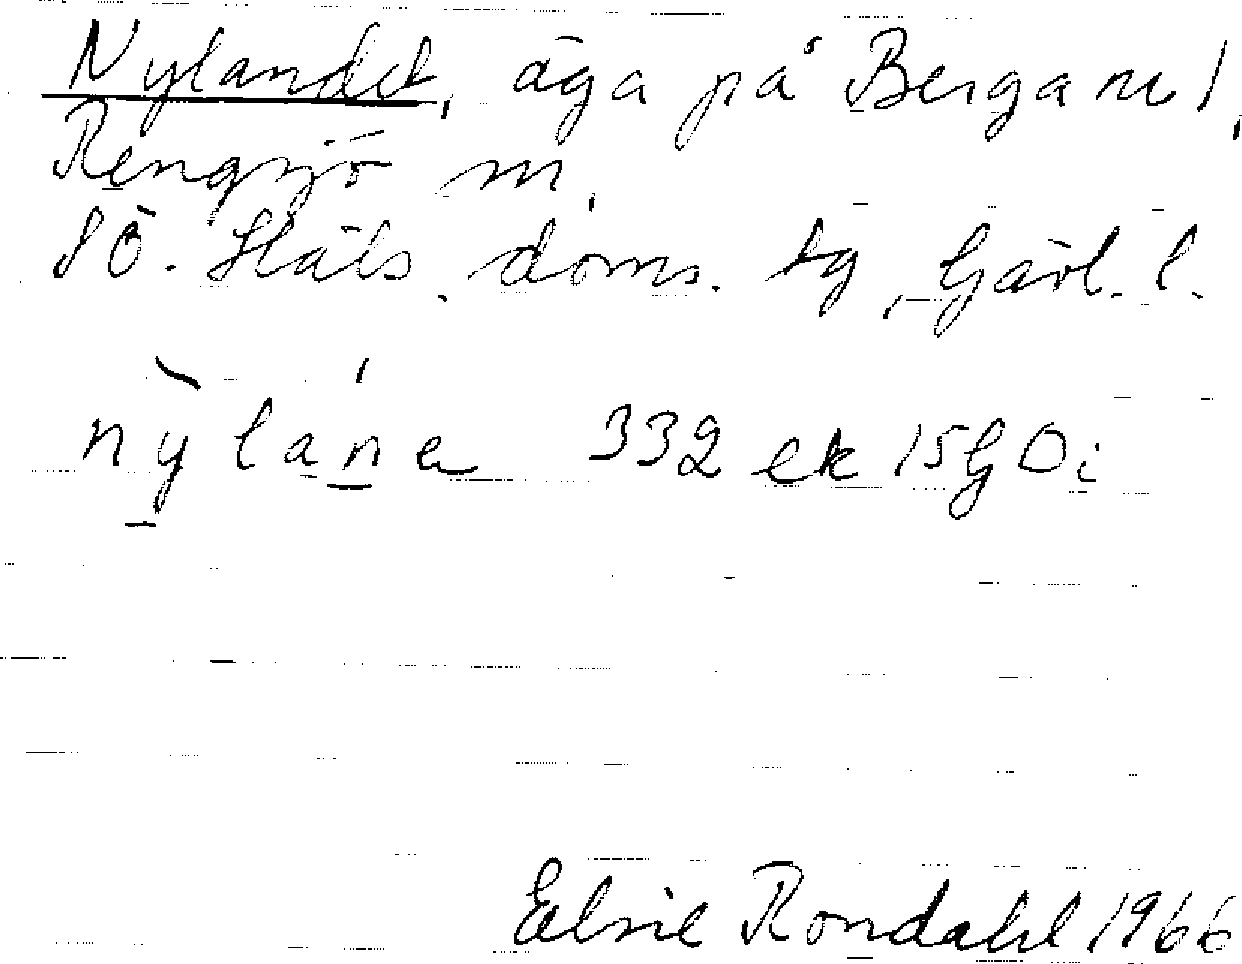 Nylandet, äga på Berga nr 1,
Rengsjö sn,
Sö. Häls. doms. tg, Gävl. l.
nỳlána 332 ek 15GDi
Elsie Rondahl 1966